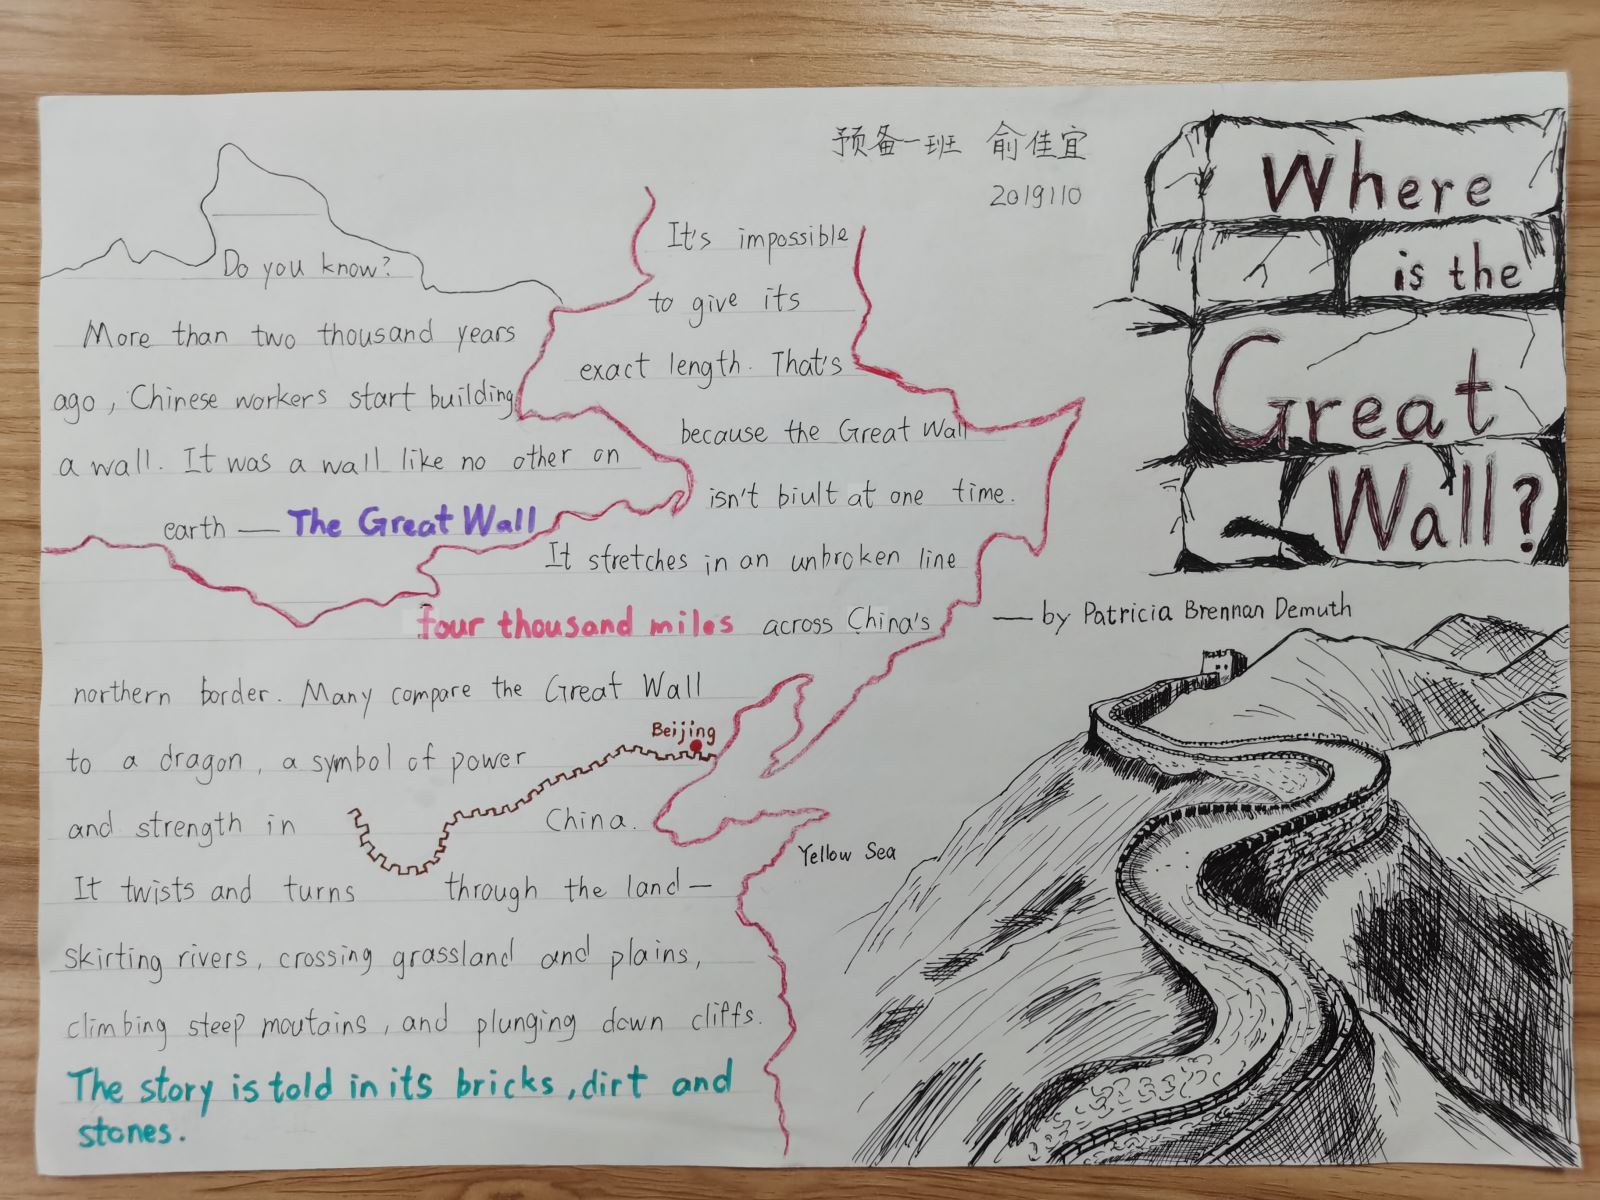 预备一班 俞佳宜
20191110
Where
is the
Great
Wall?
— by Patricia Brennan Demuth
Do you know?
More than two thousand years
ago, Chinese workers start building
a wall. It was a wall like no other on
earth — The Great Wall
It's impossible
to give its
exact length. That's
because the Great Wall
isn't biult at one time.
It stretches in an unbroken line
four thousand miles across China's
northern border. Many compare the Great Wall
to a dragon, a symbol of power
and strength in China.
It twists and turns through the land—
skirting rivers, crossing grassland and plains,
climbing steep moutains, and plunging down cliffs.
The story is told in its bricks, dirt and
stones.
Beijing
Yellow Sea